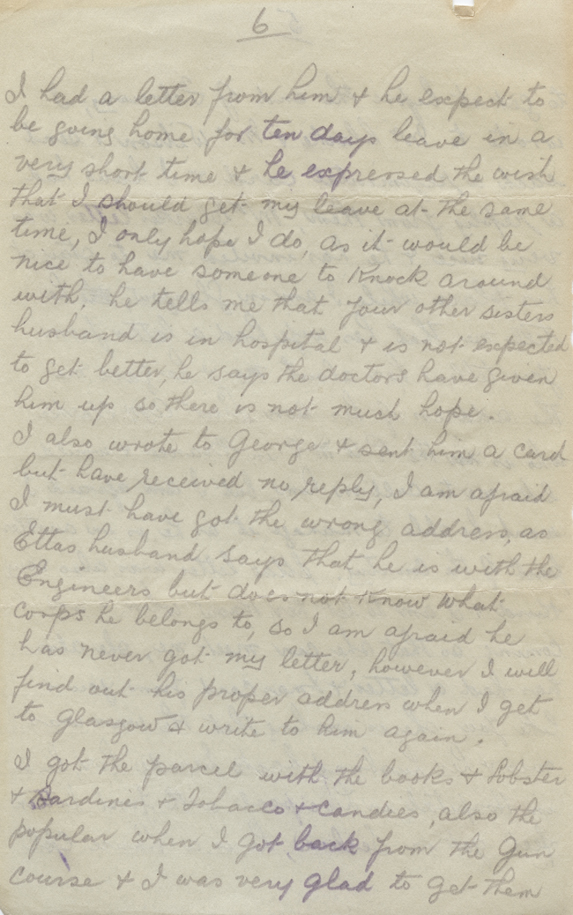 6
I had a letter from him & he expect to
be going home for ten days leave in a
very short time & he expressed the wish
that I should get my leave at the same
time, I only hope I do, as it would be
nice to have someone to knock around
with, he tells me that your other sisters
husband is in hospital & is not expected
to get better, he says the doctors have given
him up so there is not much hope.
I also wrote to George & sent him a card
but have received no reply, I am afraid
I must have got the wrong address, as
Ettas husband says that he is with the
Engineers but does not know what
corps he belongs to, so I am afraid he
has never got my letter, however I will
find out his proper address when I get
to Glasgow & write to him again.
I got the parcel with the books & Lobster
& Sardines & Tobacco & Candies, also the
popular when I got back from the Gun
course & I was very glad to get them